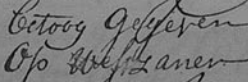 Betoog Gegeven
Op West Zanen